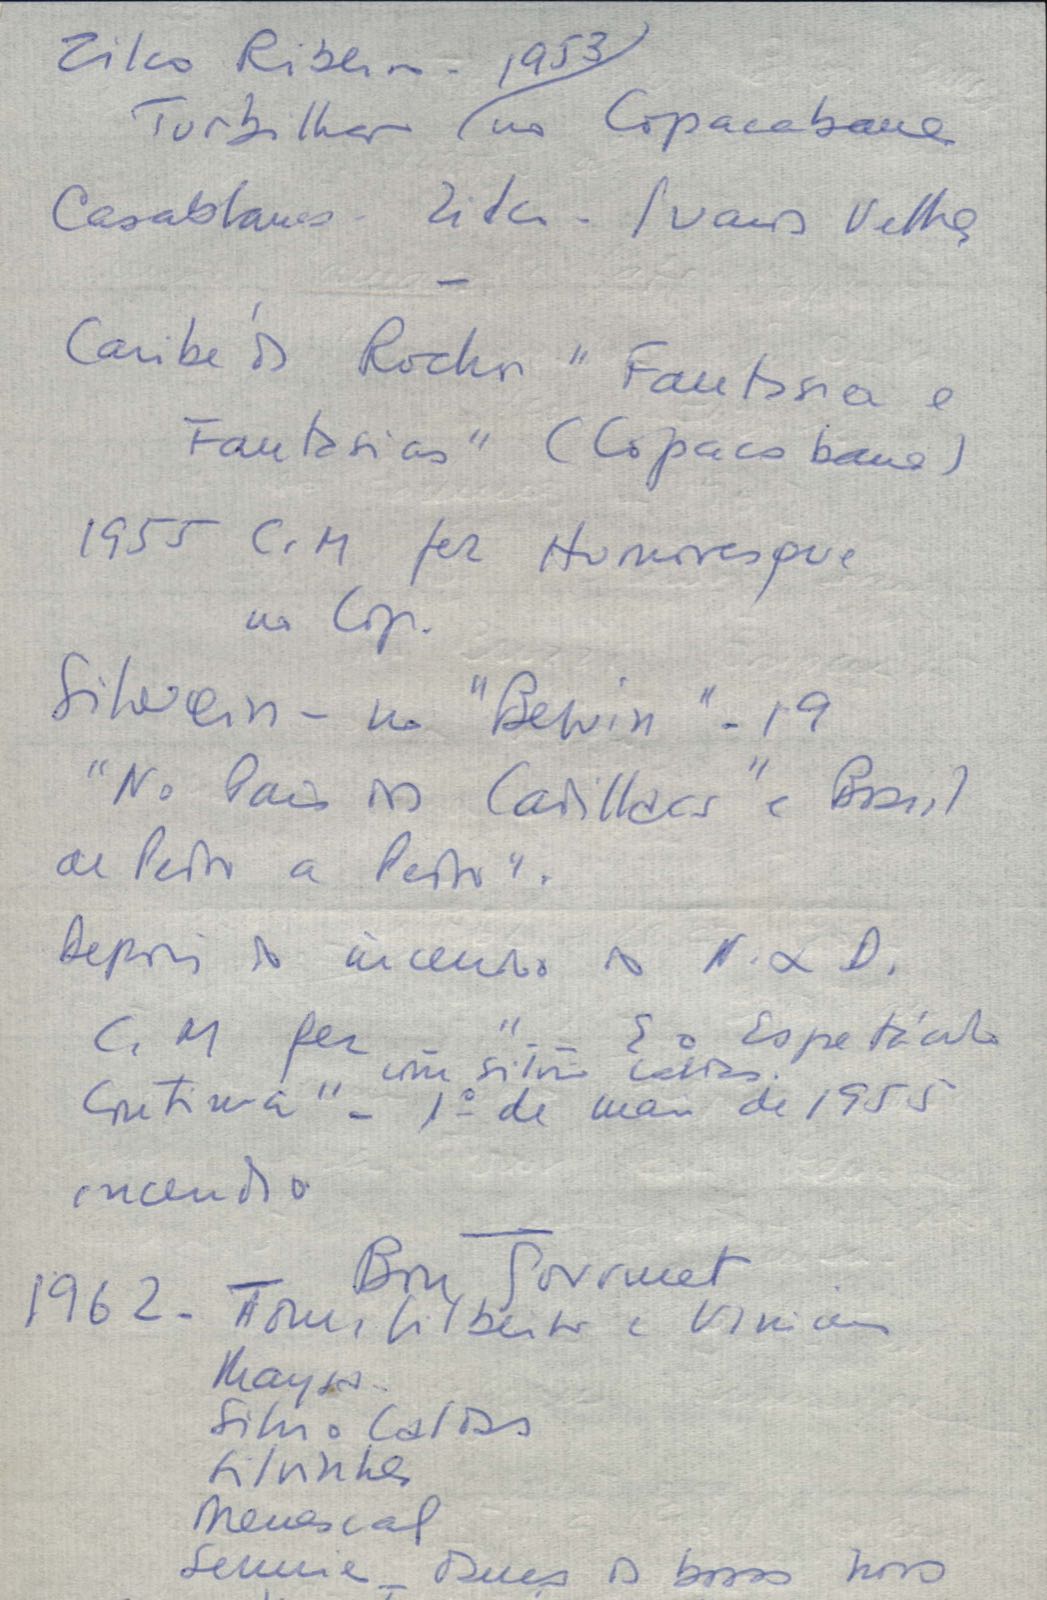 Zilco Ribeiro - 1953
Turbilhão (no Copacabana
Casablanca - Zilco - Guarda Velha
—
Caribé da Rocha "Fantasia e
Fantasias" (Copacabana)
1955 C. M fez Humoresque
no Cop.
Silveira - no "Belvin" - 19
"No País dos Cadillacs" e Brasil
de Pedro a Pedro".
Depois do incendio do N. & D.
C. M fez " - - E o Espetáculo
com Silvio Caldas.
Continua" - 1º de de 1955
incendio
Bon Gourmet
1962 - Tom, Gilberto e Vinicius
Maysa -
Silvio Caldas
Silvinha
Menescal
Lennie - dança da bossa nova